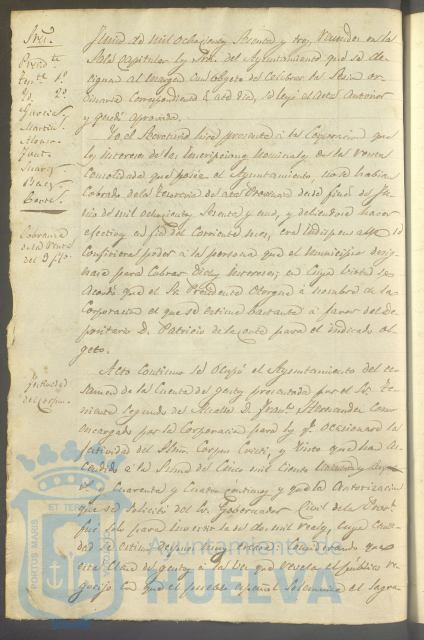 Sres.
Presid.te
Tente. 1º.
Yd. 2º.
Garcia
Martin
Alonso
Suarez
Baez
Cobranza
de la renta
del 3 p%.
Festividad
del Corpus.
Junio de mil ochocientos sesenta y tres, reunidos en la
Sala Capitular los Sres. del Ayuntamiento que se de-
signan al margen con objeto de celebrar la Sesion or-
dinaria correspondiente á este dia, se leyó el acta anterior
y quedó aprobada.
Yo el Secretario hice presente á la Corporacion que
los intereses de las Inscripciones nominales de la renta
consolidada que posee el Ayuntamiento, no se habian
cobrado de la Tesoreria de esta Provincia desde fin de
de mil ochocientos sesenta y uno, y debiendo hacer
efectivo en fin del corriente mes, era indispensable
confiriera poder á la persona que el municipio desig-
nase para cobrar dichos intereses; en cuya virtud se
acordó que el Sr. Presidente otorgue á nombre de la
Corporacion el que se estime bastante á favor del De-
positario D. Patricio de la Corte para el indicado ob-
geto.
Acto continuo se ocupó el Ayuntamiento del ec-
samen de la Cuenta del gasto presentada por el Sr. Te-
niente segundo de Alcalde D. Franco. Hernandez como
encargado por la Corporacion para los q. ocasionara la
festividad del Smo. Corpus Cristi, y visto que ha as-
cendido á la suma de cinco mil ciento
y cuarenta y cuatro centimos y que la autorizacion
que se solicitó del Sr. Gobernador Civil de la Prova.
fue solo para invertir la de dos mil reales, cuya canti-
dad se estima
esta clase de gastos á la vez que revela el público re-
gocijo con que el pueblo español solemniza el Sagra-
PORTUS MARIS
ET TER
Ayuntamiento de
HUELVA